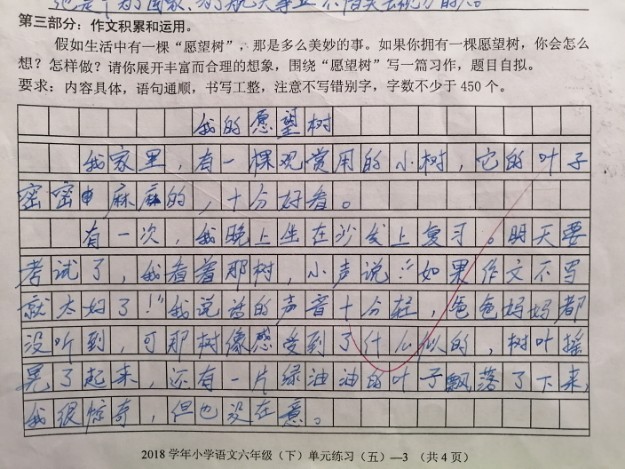 第三部分：作文积累和运用。
假如生活中有一棵“愿望树”，那是多么美妙的事。如果你拥有一棵愿望树，你会怎么
想？怎样做？请你展开丰富而合理的想象，围绕“愿望树”写一篇习作，题目自拟。
要求：内容具体，语句通顺，书写工整，注意不写错别字，字数不少于 450 个。
我的愿望树
我家里，有一棵观赏用的小树，它的叶子
密密麻麻的，十分好看。
有一次，我晚上坐在沙发上复习。明天要
考试了，我看着那树，小声说：“如果作文不写
就太好了！”我说话的声音十分轻，爸爸妈妈都
没听到，可那树像感受到了什么似的，树叶摇
晃了起来，还有一片绿油油的叶子飘落了下来，
我很惊奇，但也没在意。
2018 学年小学语文六年级（下）单元练习（五）—3 （共 4 页）